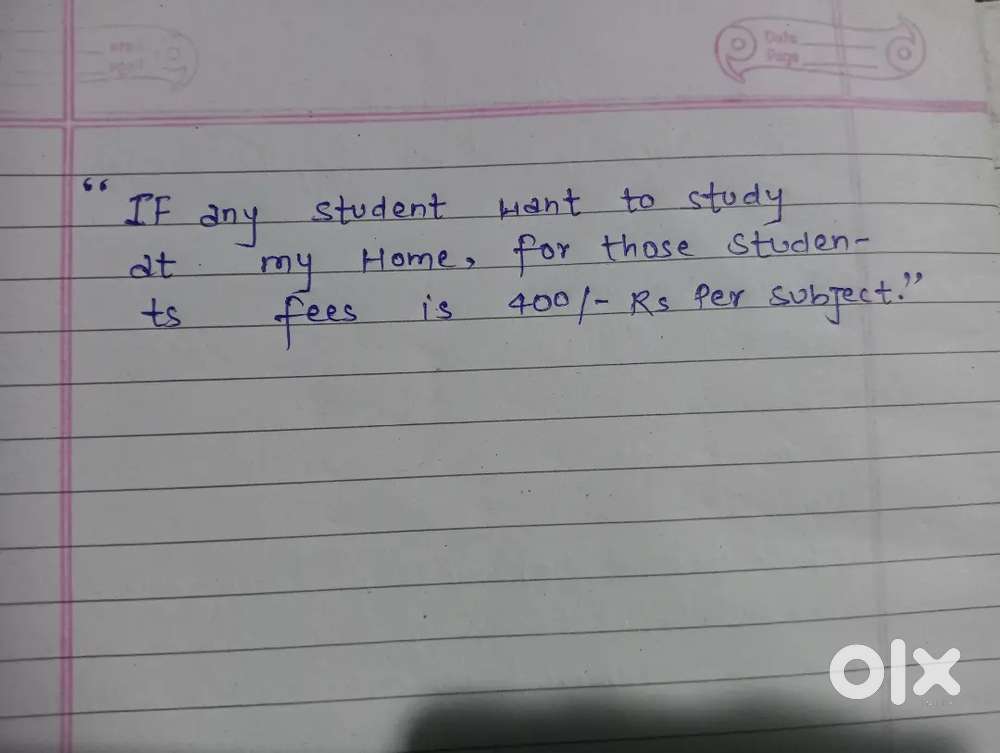 Date
Page
“ IF any student want to study
at my Home, for those studen-
ts fees is 400/- Rs Per subject.”
olx